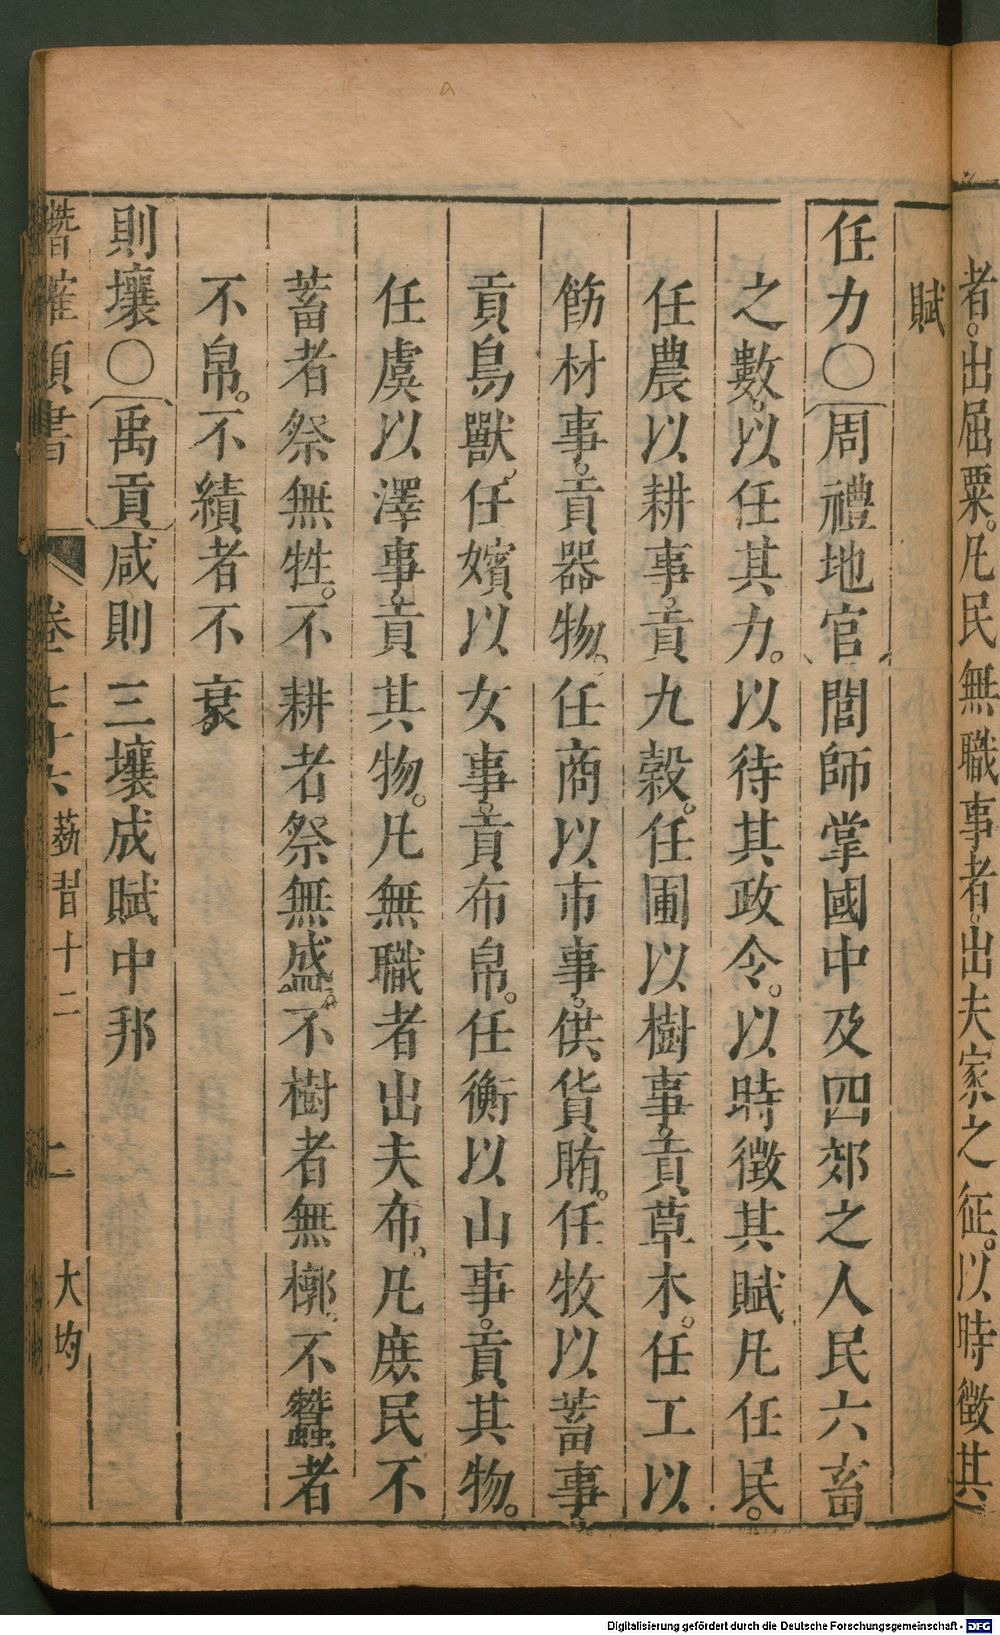 者。出屈粟。凡民無職事者。出夫家之征。以時徵其
賦
任力○周禮地官閭師掌國中及四郊之人民六畜
之數。以任其力。以待其政令。以時徵其賦。凡任民。
任農以耕事。貢九穀。任圃以樹事。貢草木。任工以
飭材事。貢器物。任商以市事。供貨賄。任牧以蓄事。
貢鳥獸。任嬪以女事。貢布帛。任衡以山事。貢其物。
任虞以澤事。貢其物。凡無職者出夫布。凡庶民不
蓄者祭無牲。不耕者祭無盛。不樹者無槨。不蠶者
不帛。不績者不衰。
則壤○禹貢咸則三壤成賦中邦
潛確類書 卷七十六 蓺習十二 二 大均
Digitalisierung gefördert durch die Deutsche Forschungsgemeinschaft - DFG